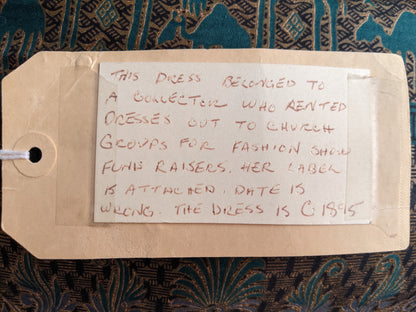 THIS DRESS BELONGED TO
A COLLECTOR WHO RENTED
DRESSES OUT TO CHURCH
GROUPS FOR FASHION SHOW
FUND RAISERS. HER LABEL
IS ATTACHED. DATE IS
WRONG. THE DRESS IS C 1895